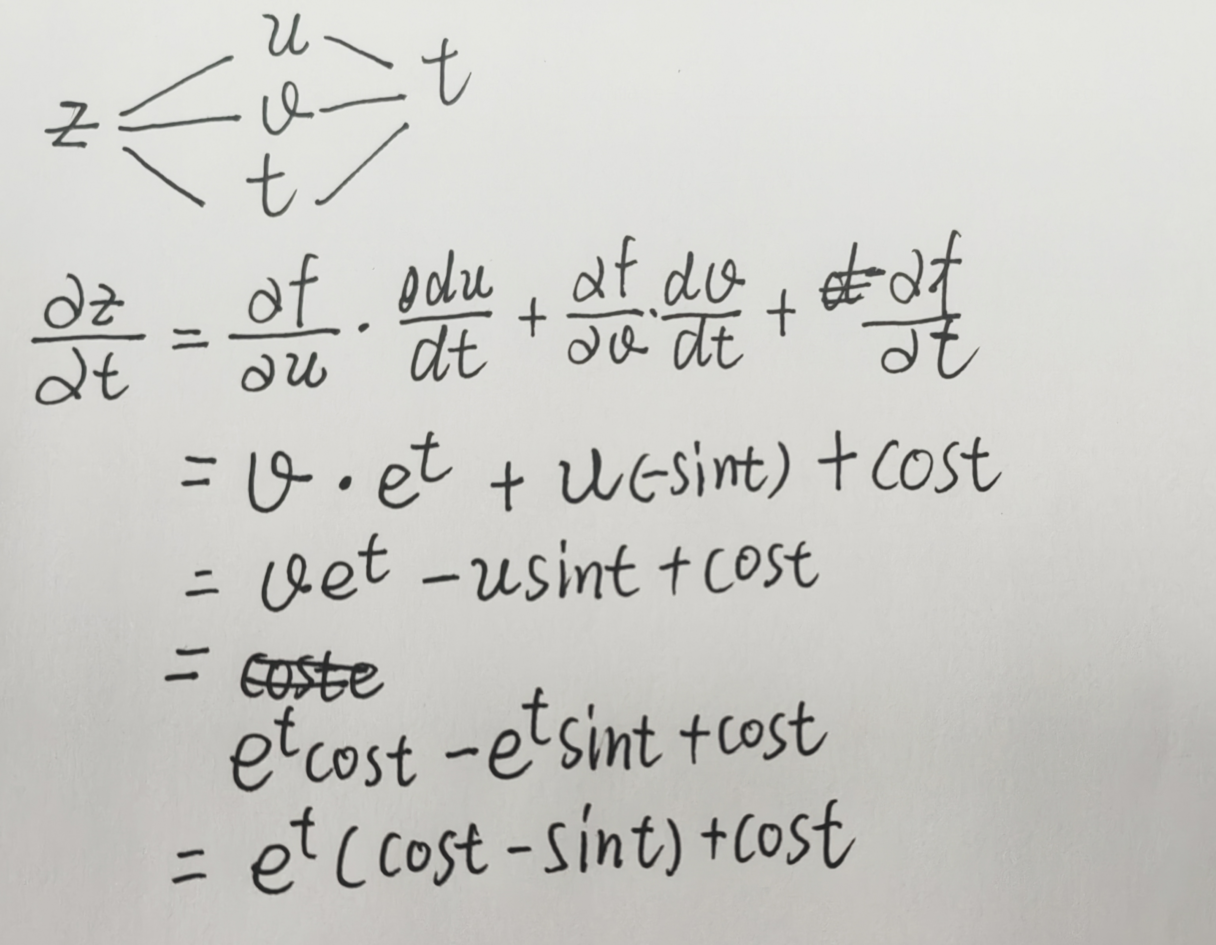 u
z v t
t
∂z/∂t = ∂f/∂u · du/dt + ∂f/∂v · dv/dt + ∂f/∂t
= v · e^t + u(-sint) + cost
= ve^t - usint + cost
=
e^t cost - e^t sint + cost
= e^t (cost - sint) + cost